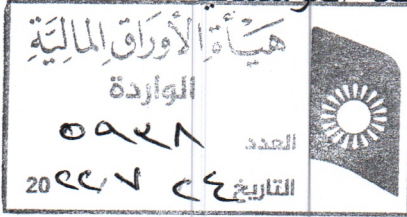 هَيْأَة الأَوْرَاقِ المَالِيَّةِ
الواردة
العدد ٥٩٣٨
التاريخ ٢٤ ٧ 20٢٢